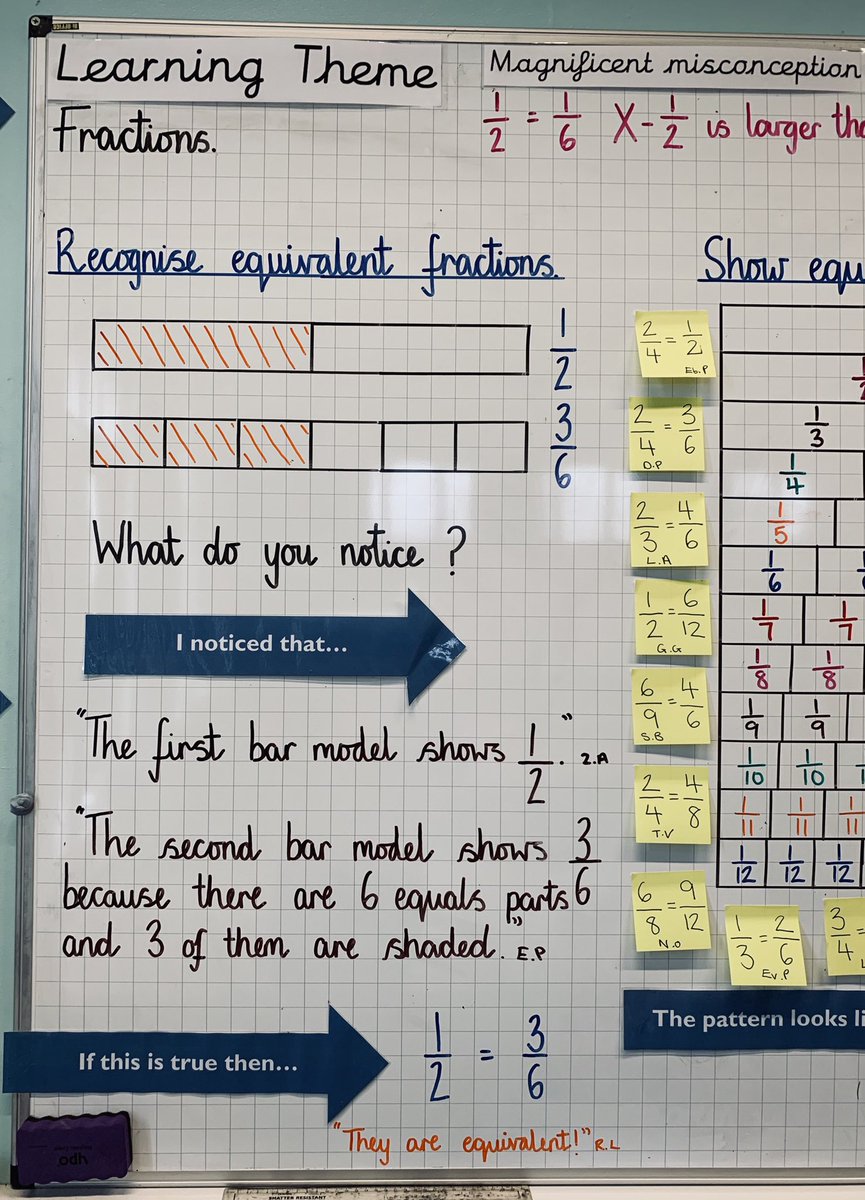 Learning Theme
Fractions.
Magnificent misconception
1/2 = 1/6 X - 1/2 is larger
Recognise equivalent fractions.
1/2
3/6
What do you notice?
I noticed that...
"The first bar model shows 1/2." Z.A
"The second bar model shows 3/6
because there are 6 equals parts
and 3 of them are shaded." E.P
If this is true then...
1/2 = 3/6
"They are equivalent!" R.L
Show
2/4 = 1/2
Eb.P
2/4 = 3/6
D.P
2/3 = 4/6
L.A
1/2 = 6/12
G.G
6/9 = 4/6
S.B
2/4 = 4/8
T.V
6/8 = 9/12
N.O
1/3 = 2/6
Ev.P
3/4 =
1/3
1/4
1/5
1/6
1/7 1/7
1/8 1/8
1/9 1/9
1/10 1/10
1/11 1/11 1/11
1/12 1/12 1/12
The pattern looks
SHATTER RESISTANT